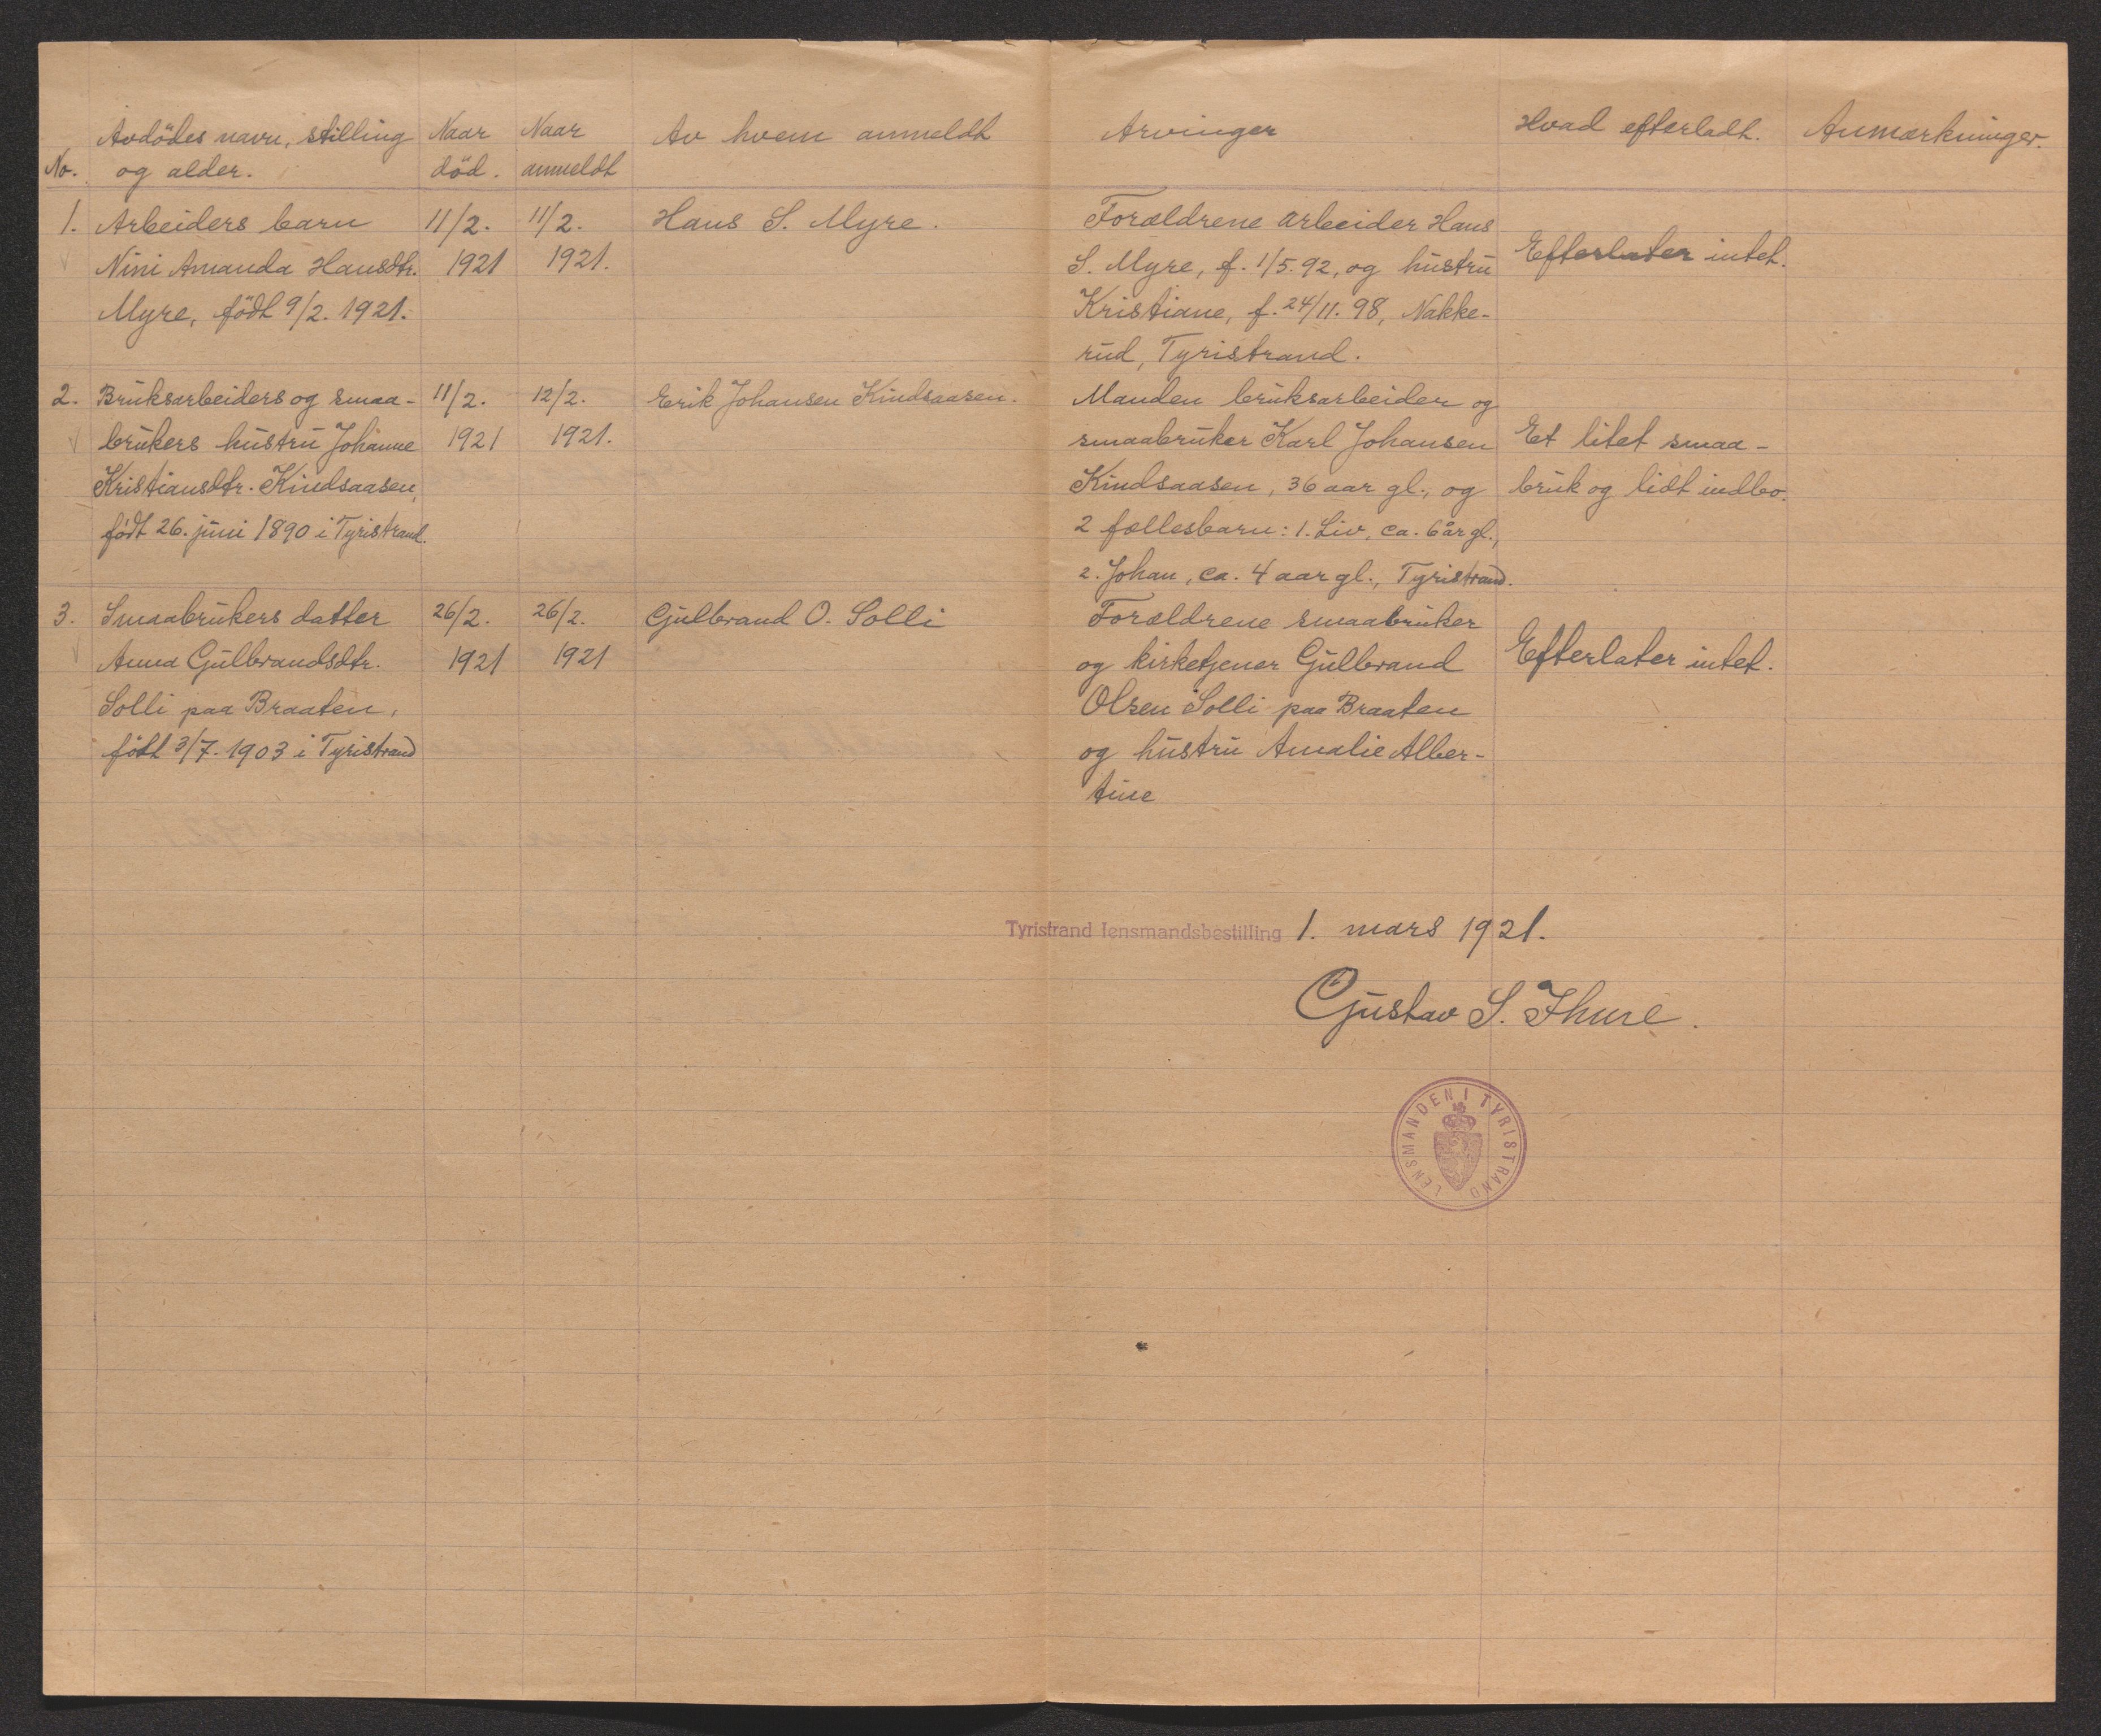 No. Avdödes navn, stilling og alder.
Naar död.
Naar anmeldt
Av hvem anmeldt
Arvinger
Hvad efterladt.
Anmærkninger.
1. Arbeiders barn
Nini Amanda Hansdtr.
Myre, födt 9/2. 1921.
11/2.
1921
11/2.
1921.
Hans S. Myre.
Forældrene arbeider Hans
S. Myre, f. 1/5. 92, og hustru
Kristiane, f. 24/11. 98, Nakke-
rud, Tyristrand.
Efterlater intet.
2. Bruksarbeiders og smaa-
brukers hustru Johanne
Kristiansdtr. Kindsaasen,
födt 26. juni 1890 i Tyristrand.
11/2.
1921
12/2.
1921.
Erik Johansen Kindsaasen.
Manden bruksarbeider og
smaabruker Karl Johansen
Kindsaasen, 36 aar gl., og
2 fællesbarn: 1. Liv, ca. 6 år gl.,
2. Johan, ca. 4 aar gl., Tyristrand.
Et litet smaa-
bruk og lidt indbo.
3. Smaabrukers datter
Anna Gulbrandsdtr.
Solli paa Braaten,
födt 3/7. 1903 i Tyristrand
26/2.
1921
26/2.
1921
Gulbrand O. Solli
Forældrene smaabruker
og kirketjener Gulbrand
Olsen Solli paa Braaten
og hustru Amalie Alber-
tine
Efterlater intet.
Tyristrand lensmandsbestilling 1. mars 1921.
Gustav S. Thure.
LENSMANDEN I TYRISTRAND